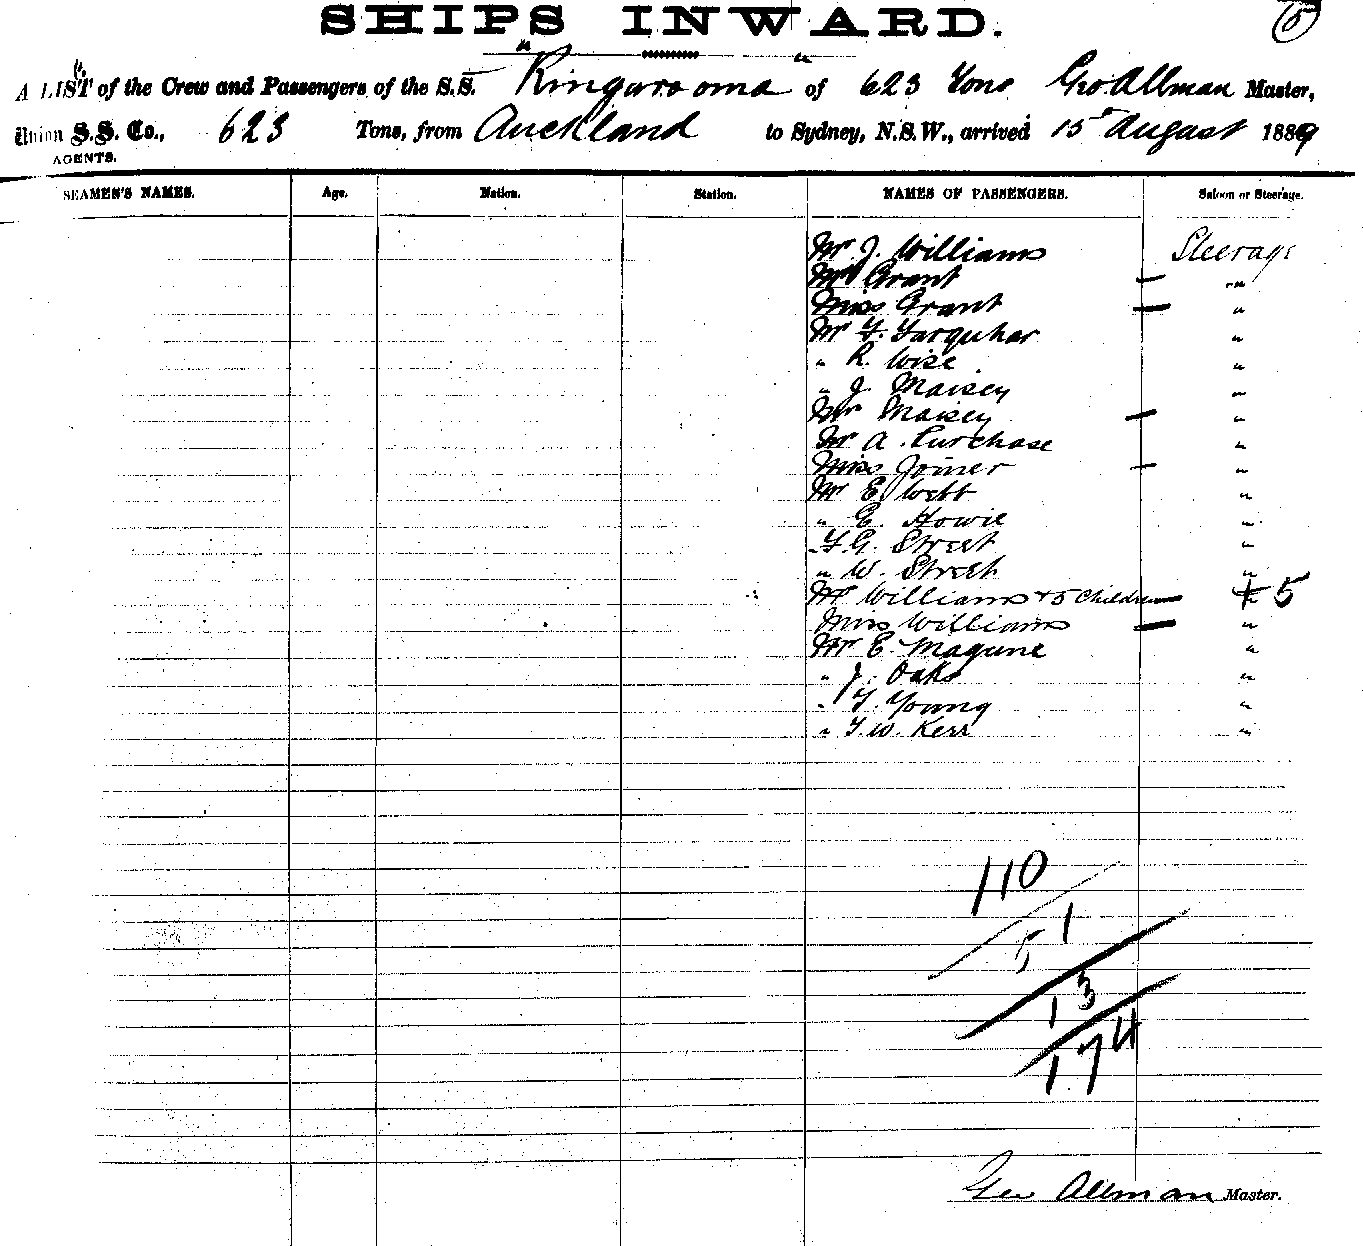 SHIPS INWARD. 5
A LIST of the Crew and Passengers of the S.S. "Ringarooma" of 623 Tons Geo Allman Master,
Union S.S. Co., 623 Tons, from Auckland to Sydney, N.S.W., arrived 15 August 1889
AGENTS.
SEAMEN'S NAMES. Age. Nation. Station. NAMES OF PASSENGERS. Saloon or Steerage.
Mr J. Williams Steerage
Mrs Grant — "
Miss Grant — "
Mr F. Farquhar "
" R. Wise "
" J. Maisey "
Mrs Maisey — "
Mr A. Purchase "
Miss Joiner — "
Mr E. Webb "
" E. Howie "
" F G. Street "
" W. Street "
Mrs Williams + 5 Children — " + 5
Miss Williams — "
Mr E. Magune "
" J. Oaks "
" F. Young "
" F. W. Kerr "
110
51
13
174
Geo Allman Master.